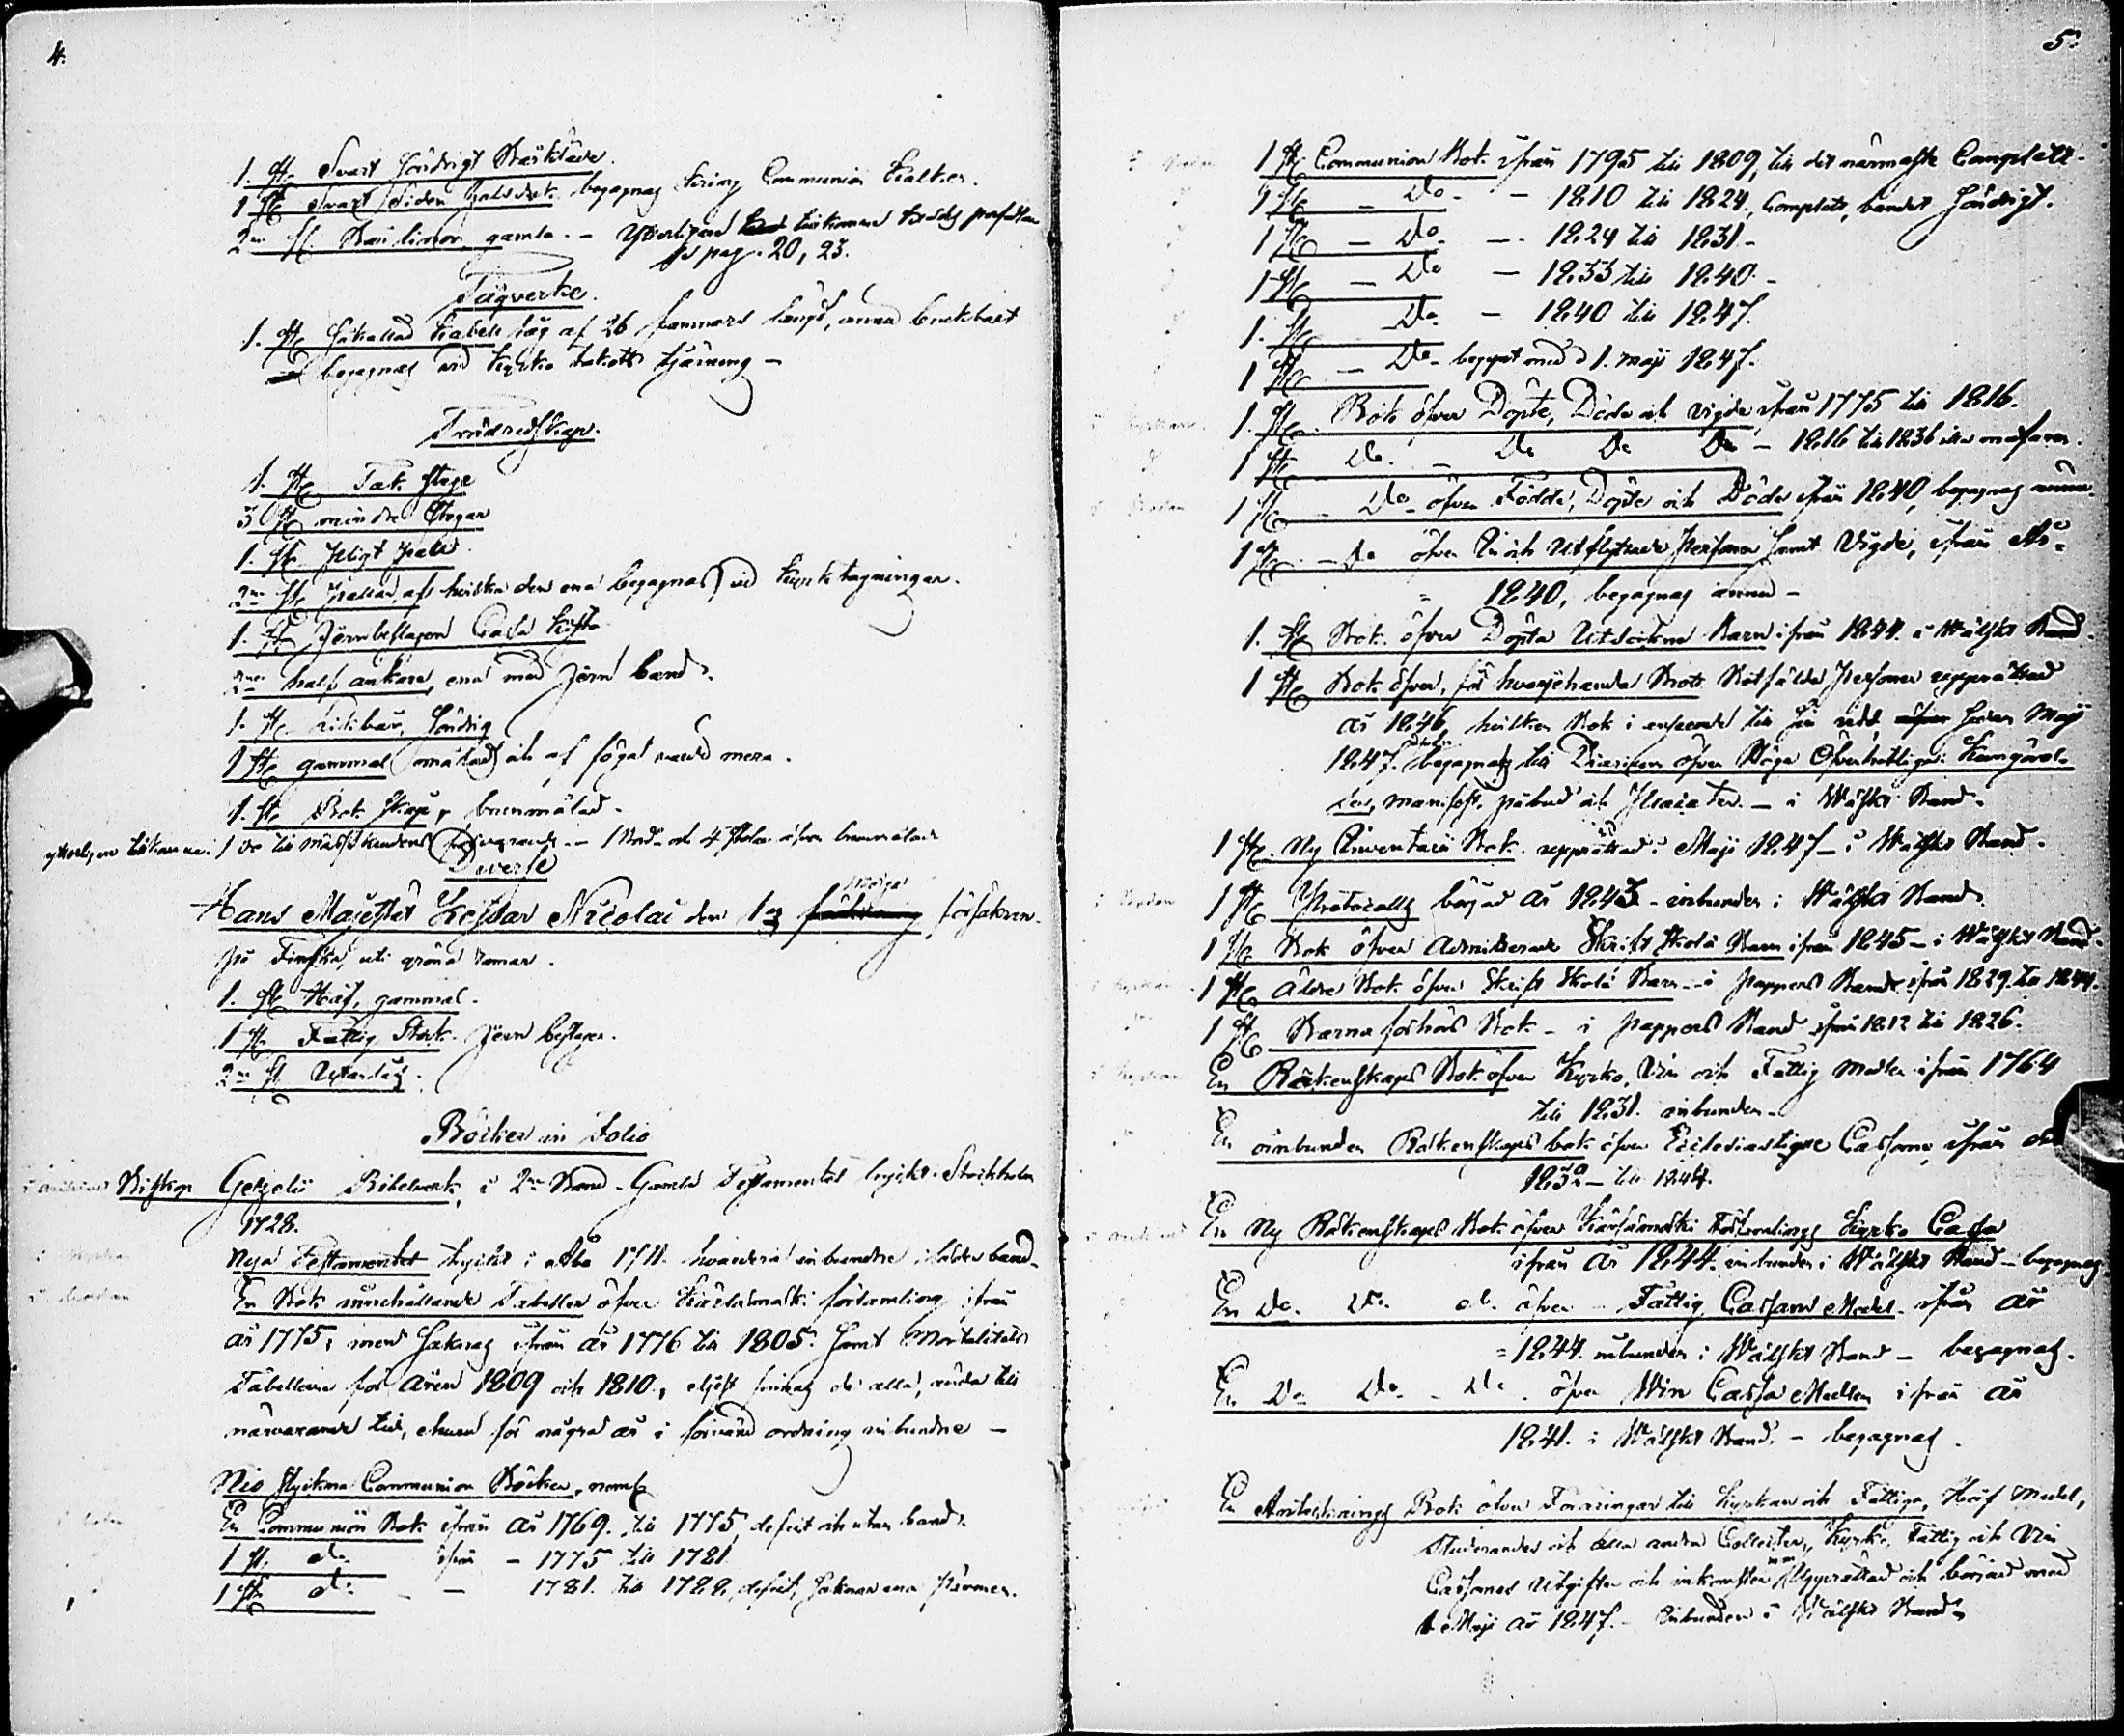 4.
1. St. Svart söndrigt Bårkläde.
1 St. Svart Siden halsduk begagnas kring Communion Kalken.
2ne St. Bår linor, gamla. — Ytterligare tillkommen
pag. 20, 23.
Tågverke.
1. St. så kallad Kabell tåg af 26 famnars längd, ännu brukbart
begagnas vid kyrko takets tjärning —
Trädredskap.
1. St. Tak stege
3 St. mindre Stegar
1. St. Pligt pall
2ne St. Pallar, af hvilka den ena begagnas vid kyrktagningar.
1. St. Jernbeslagen Cassa kista
2ne half ankare, ena med Jern band.
1. St. Likbår, söndrig
1 St. gammal omålad och af föga värde mera.
1. St. Bok skåp, brunmålad.
ytterligare tillkommen 1 do till mässkruden — 1 Bord och 4 Stolar brunmålade
Diverse
Hans Majestät Kejsar Nicolai den 1s försäkran
på Finska, uti gröna ramar.
1. St. Håf, gammal.
1 St. Fattig Stock. Jern beslagen.
2ne St.
Böcker in Folio
Biskop Gezelii Bibelverk, i 2ne Band. Gamla Testamentet tryckt i Stockholm
1728.
Nya Testamentet tryckt i Åbo 1711. hvardera inbundne i läder band.
En Bok innehållande Tabeller öfver Kärsämäki församling, ifrån
år 1775; men saknas ifrån år 1776 till 1805. samt Mortalitets
Tabellerne för åren 1809 och 1810, eljest finnas de alla, ända till
närvarande tid, ehuru för några år i förvänd ordning inbundne —
Nio stycken Communion Böcker, neml.
En Communion Bok ifrån år 1769. till 1775, defect och utan band.
1 St. do ifrån — 1775 till 1781.
1 St. do — — 1781. till 1788, defect, saknar ena pärmen.
5.
1 St. Communion Bok ifrån 1795 till 1809, till det närmaste Complett.
1 St. — Do — — 1810 till 1824, Complett, bandet söndrigt.
1 St. — Do — 1824 till 1831 —
1 St. — Do — 1833 till 1840 —
1. St. Do — 1840 till 1847.
1 St. — Do — begynt med d 1. Maji 1847.
1. St. Bok öfver Döpte, Döde och Vigde ifrån 1775 till 1816.
1 St. Do. — Do Do Do — 1816 till 1836
1 St. — Do öfver Födde, Döpte och Döde ifrån 1840, begagnas ännu.
1 St. — Do öfver In och Utflyttade Personer samt Vigde, ifrån År
1840, begagnas ännu —
1. St. Bok öfver Döpta Utsockne Barn ifrån 1844. i Wälskt Band.
1 St. Bok öfver, för hvarjehanda Brott Bötfälda Personer upprättad
år 1846, hvilken Bok i anseende till sedan Maji
1847. begagnas till Diarium öfver Höga Öfverhetliga Kungörel-
ser, manifest, påbud och Placater. — i Wälskt Band.
1 St. Ny Inventarii Bok upprättad i Maji 1847 — i Wälskt Band.
1 St. Protocolls börjad År 1843 — inbunden i Wälskt Band.
1 St. Bok öfver Admitterade Skrift Skola Barn ifrån 1845 — i Wälskt Band.
1 St. äldre Bok öfver Skrift Skola Barn — i pappers Band ifrån 1829. till 1844.
1 St. Barna förhörs Bok — i pappers Band ifrån 1812 till 1826.
En Räkenskaps Bok öfver Kyrko, Vin och Fattig medlen ifrån 1764
till 1831. inbunden —
En oinbunden Räkenskaps bok öfver Ecclesiastique Cassorne, ifrån
1832 — till 1844.
En Ny Räkenskaps Bok öfver Kärsämäki Församlings Kyrko Cassa
ifrån År 1844. inbunden i Wälskt Band — begagnas.
En Do. Do. do. öfver — Fattig Cassans Medel ifrån År
1844. inbunden i Wälskt Band — begagnas.
En Do Do. — Do. öfver Win Cassa Medlen ifrån År
1841. i Wälskt Band. — begagnas.
En Antecknings Bok öfver Foraringar till Kyrkan och Fattiga, Håf Medel,
Studerandes och alla andra Collecter, Kyrko, Fattig och Vin
Cassornes Utgifter och inkomster upprättad och börjad med
1 Maji år 1847. — Inbunden i Wälskt Band.